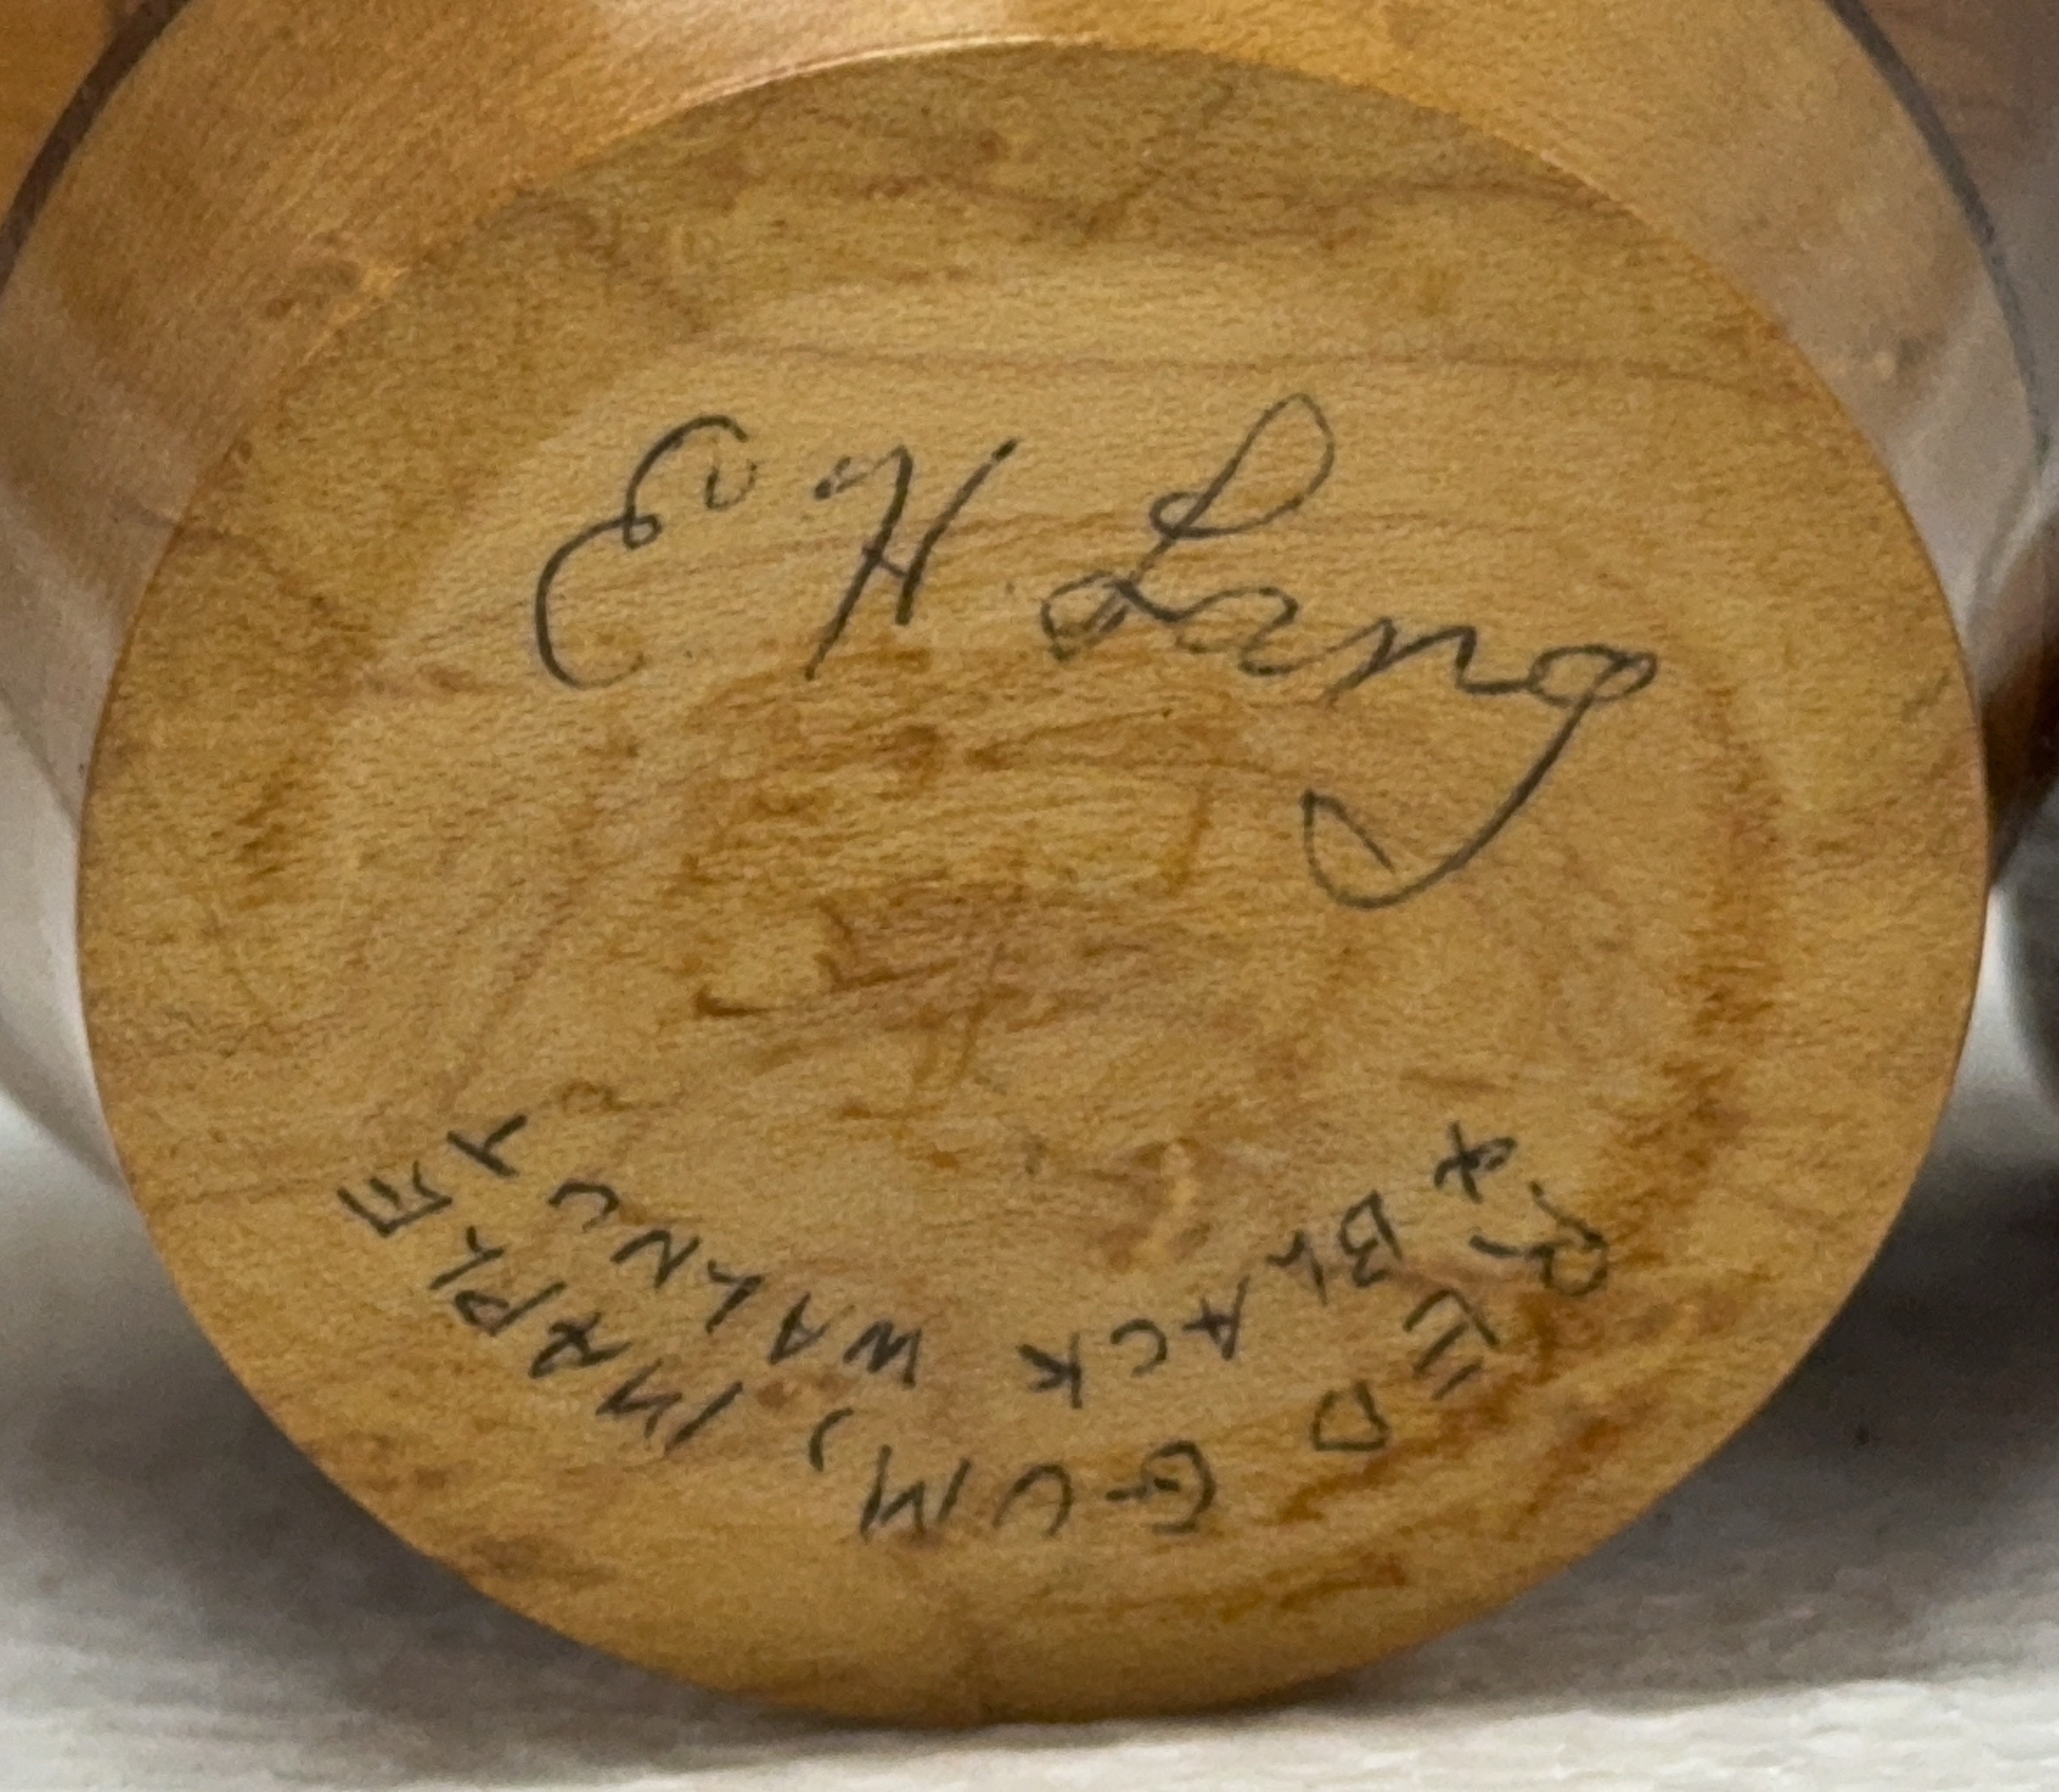 E H Lang
RED GUM, MAPLE
& BLACK WALNUT